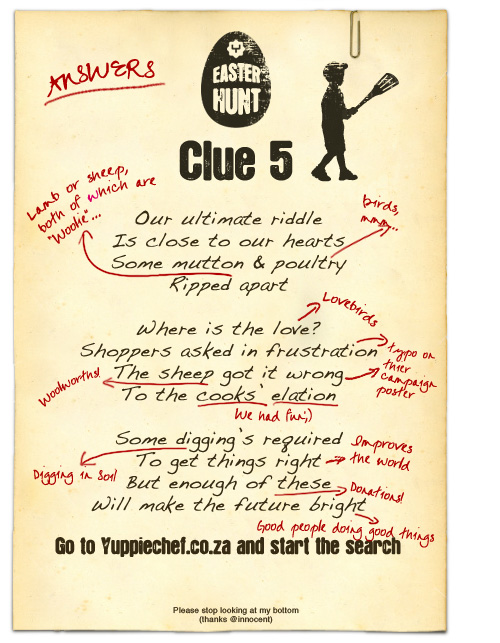 ANSWERS
EASTER
HUNT
Clue 5
Lamb or sheep,
both of which are
"Woolie"...
birds,
mmm...
Our ultimate riddle
Is close to our hearts
Some mutton & poultry
Ripped apart
Lovebirds
Where is the love?
Shoppers asked in frustration
typo on
thier
campaign
poster
The sheep got it wrong
Woolworths!
To the cooks' elation
We had fun;)
Some digging's required
Improves
the world
To get things right
Digging in soil
But enough of these
Donations!
Will make the future bright
Good people doing good things
Go to Yuppiechef.co.za and start the search
Please stop looking at my bottom
(thanks @innocent)